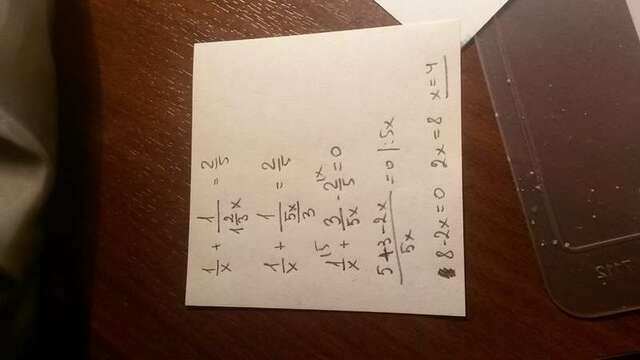 1/x + 1/(1 2/3 x) = 2/5
1/x + 1/(5x/3) = 2/5
1/x + 3/5x - 2/5 = 0
(5+3-2x)/5x = 0 |:5x
8-2x=0 2x=8 x=4